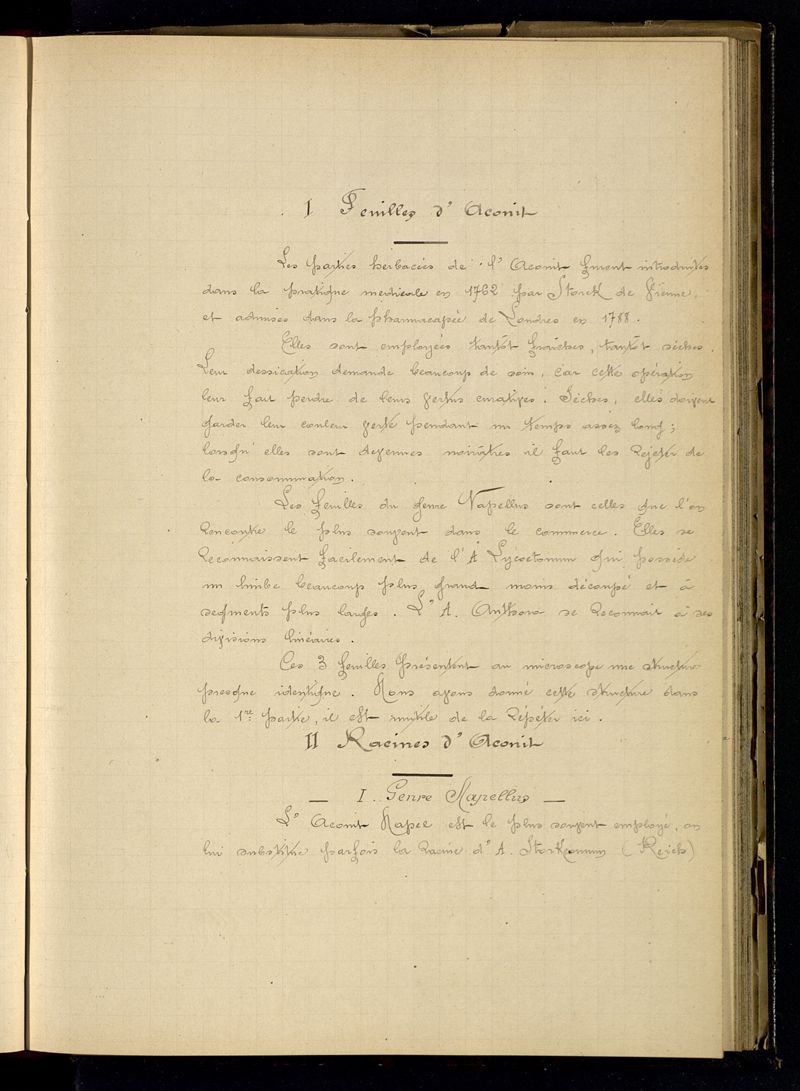 I Feuilles d'Aconit
Les parties herbacées de l'Aconit furent introduites
dans la pratique médicale en 1762 par Storck de Vienne,
et admises dans la pharmacopée de Londres en 1788.
Elles sont employées tantôt fraîches, tantôt sèches.
Leur dessication demande beaucoup de soin, car cette opération
leur fait perdre de leurs vertus curatives. Sèches, elles doivent
garder leur couleur verte pendant un temps assez long ;
lorsqu'elles sont devenues noirâtres il faut les rejeter de
la consommation.
Les feuilles du genre Napellus sont celles que l'on
rencontre le plus souvent dans le commerce. Elles se
reconnaissent facilement de l'A Lycoctonum qui possède
un limbe beaucoup plus grand moins découpé et à
segments plus larges. L'A. Anthora se reconnait à ses
divisions linéaires.
Ces 3 feuilles présentent au microscope une structure
presque identique. Nous avons donné cette structure dans
la 1re partie, il est inutile de la répéter ici.
II Racines d'Aconit
— I. Genre Napellus —
L'Aconit Napel est le plus souvent employé, on
lui substitue parfois la racine d'A. Storkeanum (Reich)